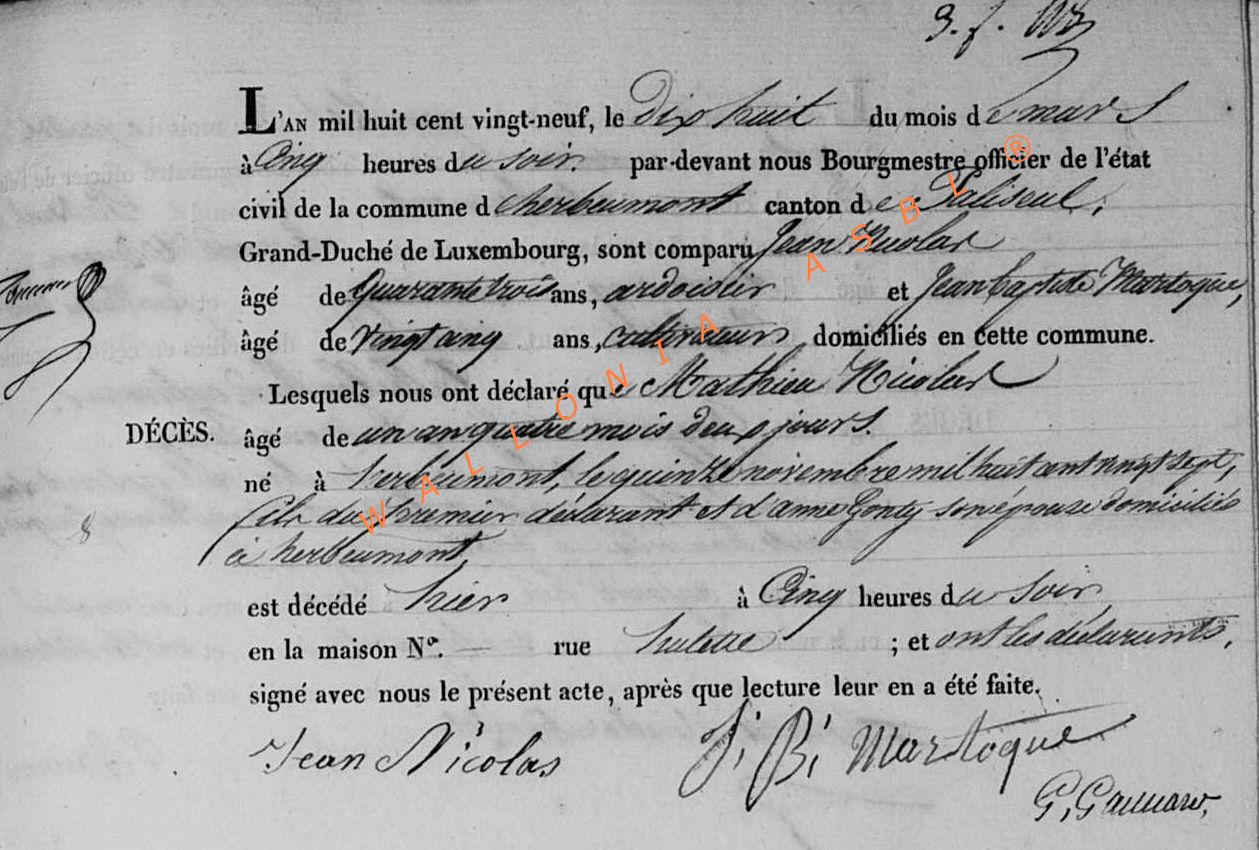 L'AN mil huit cent vingt-neuf, le dix huit du mois de mars
à Cinq heures du soir. par-devant nous Bourgmestre officier de l'état
civil de la commune d'herbeumont canton de Paliseul,
Grand-Duché de Luxembourg, sont comparu Jean Nicolas
âgé de Quarante trois ans, ardoisier et Jean baptiste Martoque,
âgé de Vingt cinq ans, cultivateurs domiciliés en cette commune.
Lesquels nous ont déclaré que Mathieu Nicolas
DÉCÈS. âgé de un an quatre mois deux jours.
né à herbeumont, le quinze novembre mil huit cent vingt sept,
fils du premier déclarant et d'anne Gonty son épouse domiciliés
à herbeumont,
est décédé hier à Cinq heures du soir,
en la maison N°. — rue ; et ont les déclarants,
signé avec nous le présent acte, après que lecture leur en a été faite.
Jean Nicolas J. B. Martoque
WALLONIA ASBL ®